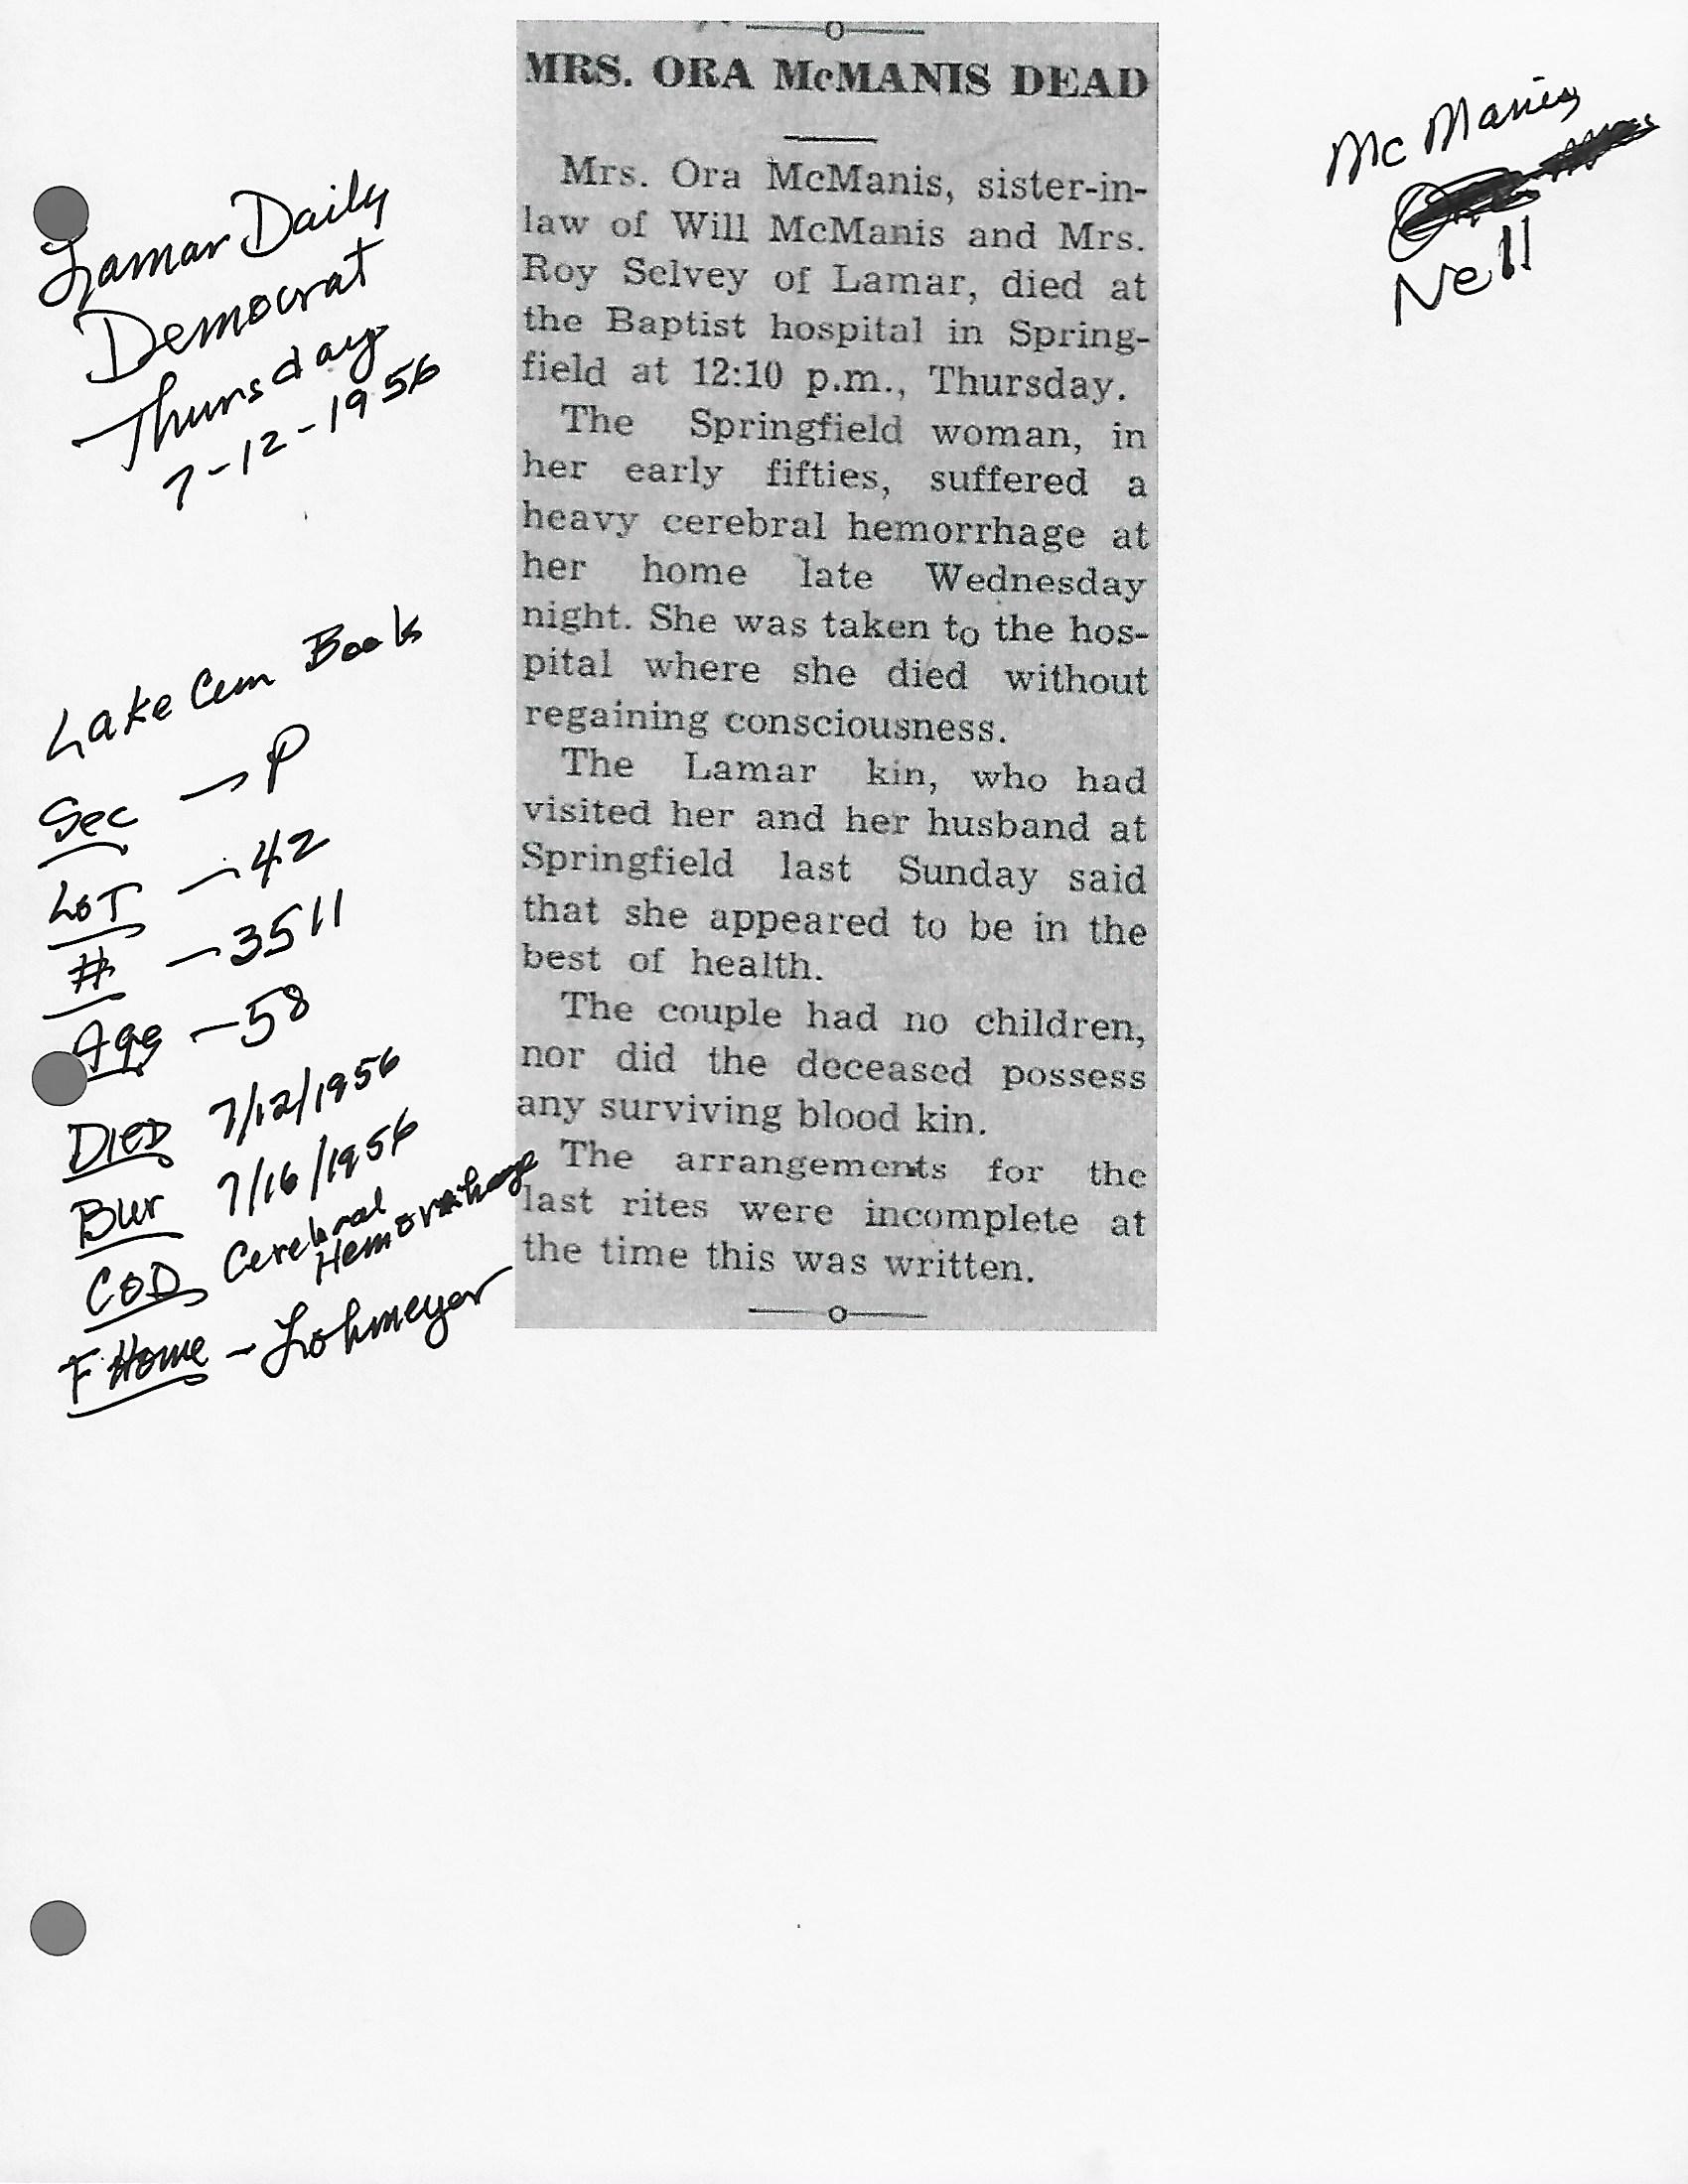 MRS. ORA McMANIS DEAD
Mrs. Ora McManis, sister-in-
law of Will McManis and Mrs.
Roy Selvey of Lamar, died at
the Baptist hospital in Spring-
field at 12:10 p.m., Thursday.
The Springfield woman, in
her early fifties, suffered a
heavy cerebral hemorrhage at
her home late Wednesday
night. She was taken to the hos-
pital where she died without
regaining consciousness.
The Lamar kin, who had
visited her and her husband at
Springfield last Sunday said
that she appeared to be in the
best of health.
The couple had no children,
nor did the deceased possess
any surviving blood kin.
The arrangements for the
last rites were incomplete at
the time this was written.
Lamar Daily
Democrat
Thursday
7-12-1956
Lake Cem Book
Sec - P
LOT - 42
# - 3511
Age - 58
DIED 7/12/1956
Bur 7/16/1956
COD Cerebral
Hemorrhage
F Home - Lohmeyer
McManis
Nell